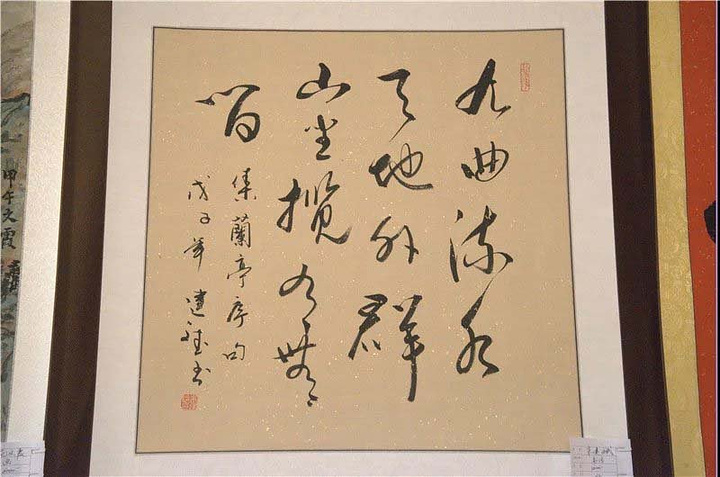 九曲流水
天地外群
山坐揽有無
間
集蘭亭序句
戊子年建 书
甲午文霞